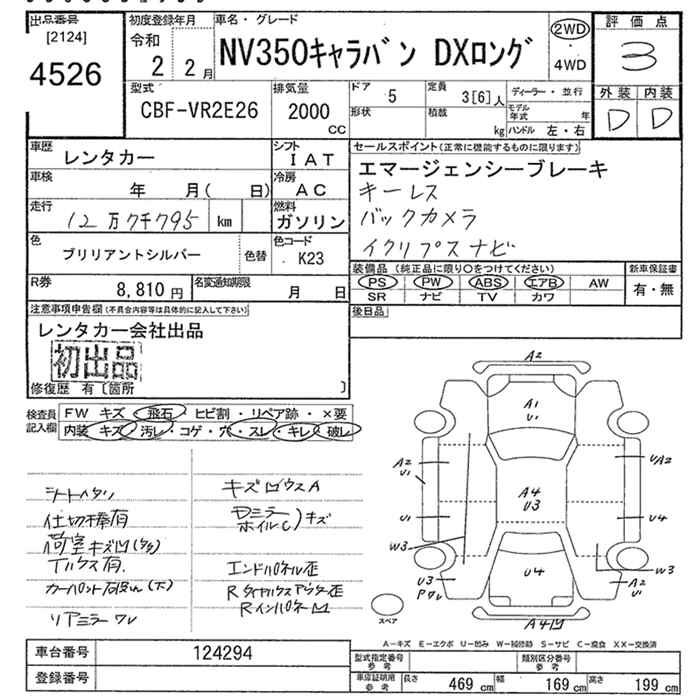 出品番号
[2124]
4526
初度登録年月
令和
2 2月
車名・グレード
NV350キャラバン DXロング
2WD
・
4WD
評価点
3
外装 内装
D D
型式
CBF-VR2E26
排気量
2000
CC
ドア
5
定員
3[6]人
ディーラー・並行
形状
積載
kg
モデル年式 年
ハンドル 左・右
車歴
レンタカー
シフト
IAT
車検
年 月( 日)
冷房
AC
走行
12万7千795 km
燃料
ガソリン
色
ブリリアントシルバー
色替
色コード
K23
R券
8,810円
名変通知期限
月 日
セールスポイント(正常に機能するものに限ります)
エマージェンシーブレーキ
キーレス
バックカメラ
イクリプスナビ
装備品 (純正品に限り○をつけてください)
PS PW ABS エアB AW
SR ナビ TV カワ
新車保証書
有・無
後日品
注意事項申告欄(不具合内容等は具体的に記入して下さい)
レンタカー会社出品
初出品
修復歴 有〔箇所 〕
検査員記入欄
FW キズ・飛石・ヒビ割・リペア跡・×要
内装 キズ・汚レ・コゲ・穴・スレ・キレ・破レ
シートヘタリ
仕切棒有
荷室キズ凹(多多)
Tハウス有.
リアミラーワレ
キズ凹ウスA
ドアミラー
ホイルC)キズ
エンドパネル歪
Rインパネ凹
A2
A1
U1
A2
U1
U/A2
A4
U3
U1
U4
W3
W3
U4
U3
A2
U1
A4凹
スペア
A-キズ E-エクボ U-凹み W-補修跡 S-サビ C-腐食 XX-交換済
車台番号 124294
登録番号
型式指定番号
参考
類別区分番号
参考
車庫証明用
参考
長さ 469 cm 幅 169 cm 高さ 199 cm